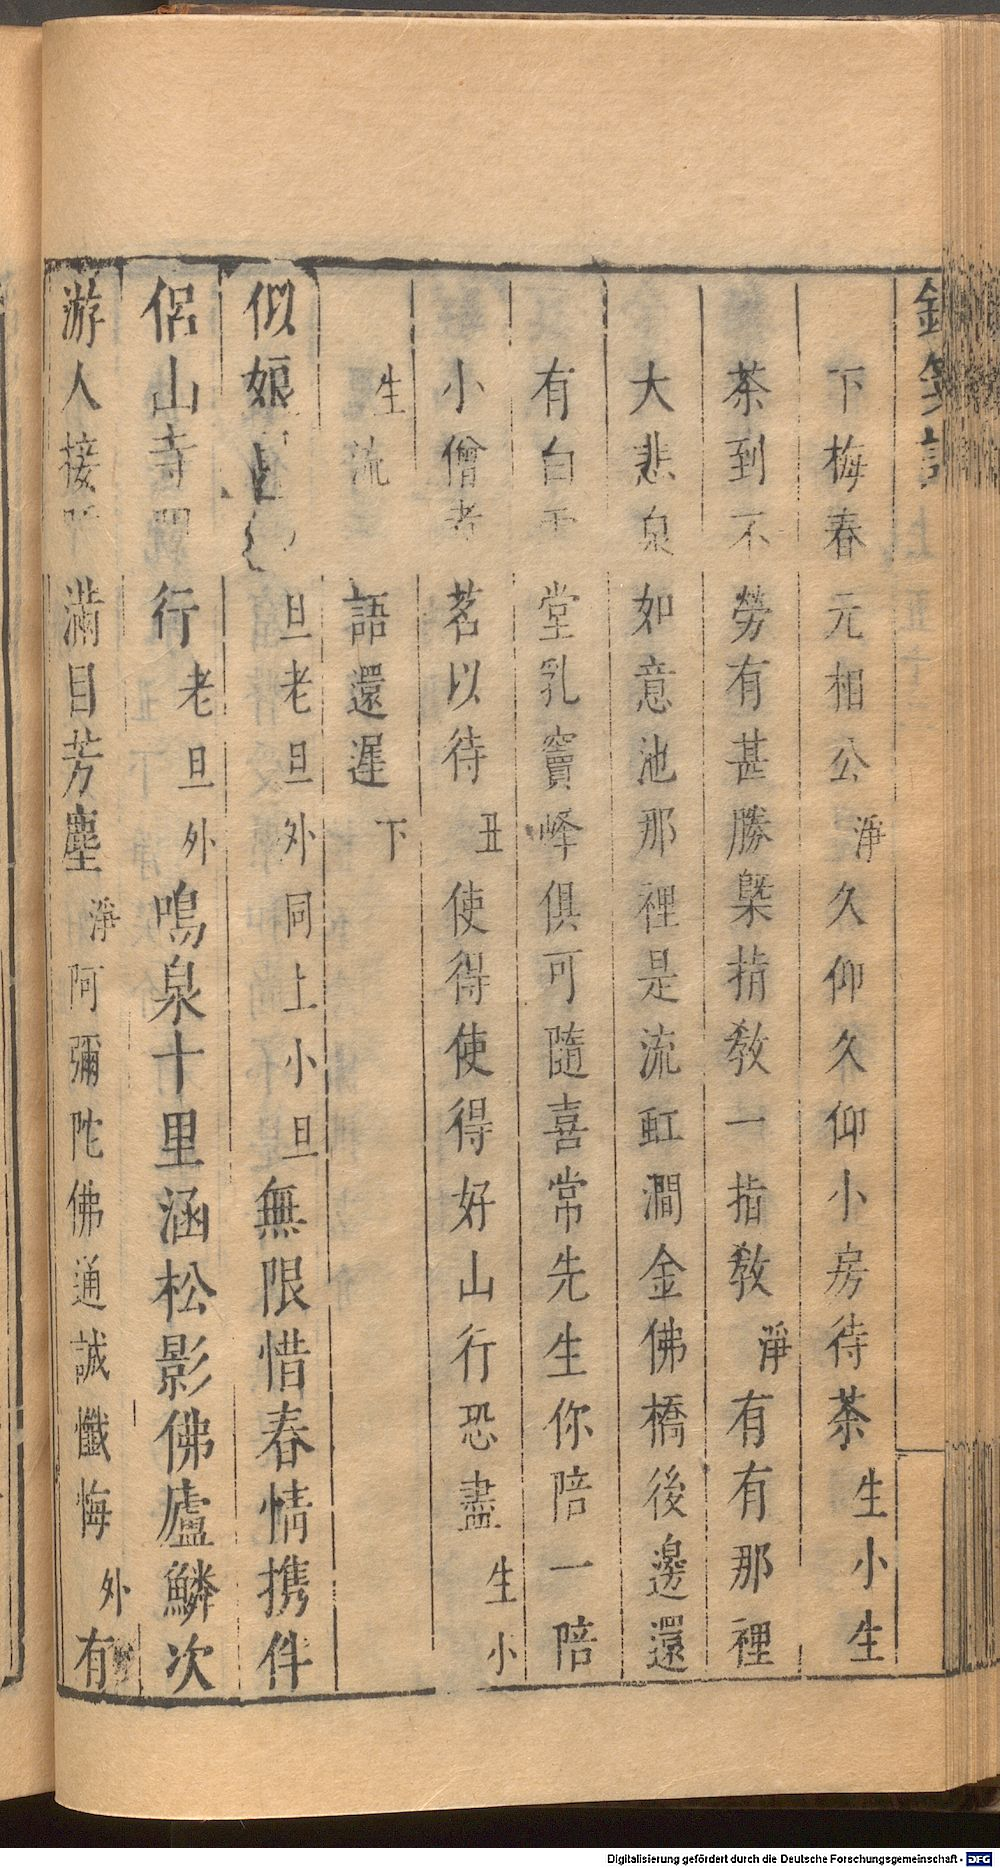 下梅春元相公淨久仰久仰小房待茶生小生
茶到不勞有甚勝槩指教一指教淨有有那裡
大悲泉如意池那裡是流虹澗金佛橋後邊還
有白玉堂乳竇峰俱可隨喜常先生你陪一陪
小僧煮茗以待丑使得使得好山行恐盡生小
生流語還遲下
似娘旦老旦外同上小旦無限惜春情携伴
侶山寺行老旦外鳴泉十里涵松影佛廬鱗次
游人接滿目芳塵淨阿彌陀佛通誠懺悔外有
Digitalisierung gefördert durch die Deutsche Forschungsgemeinschaft - DFG